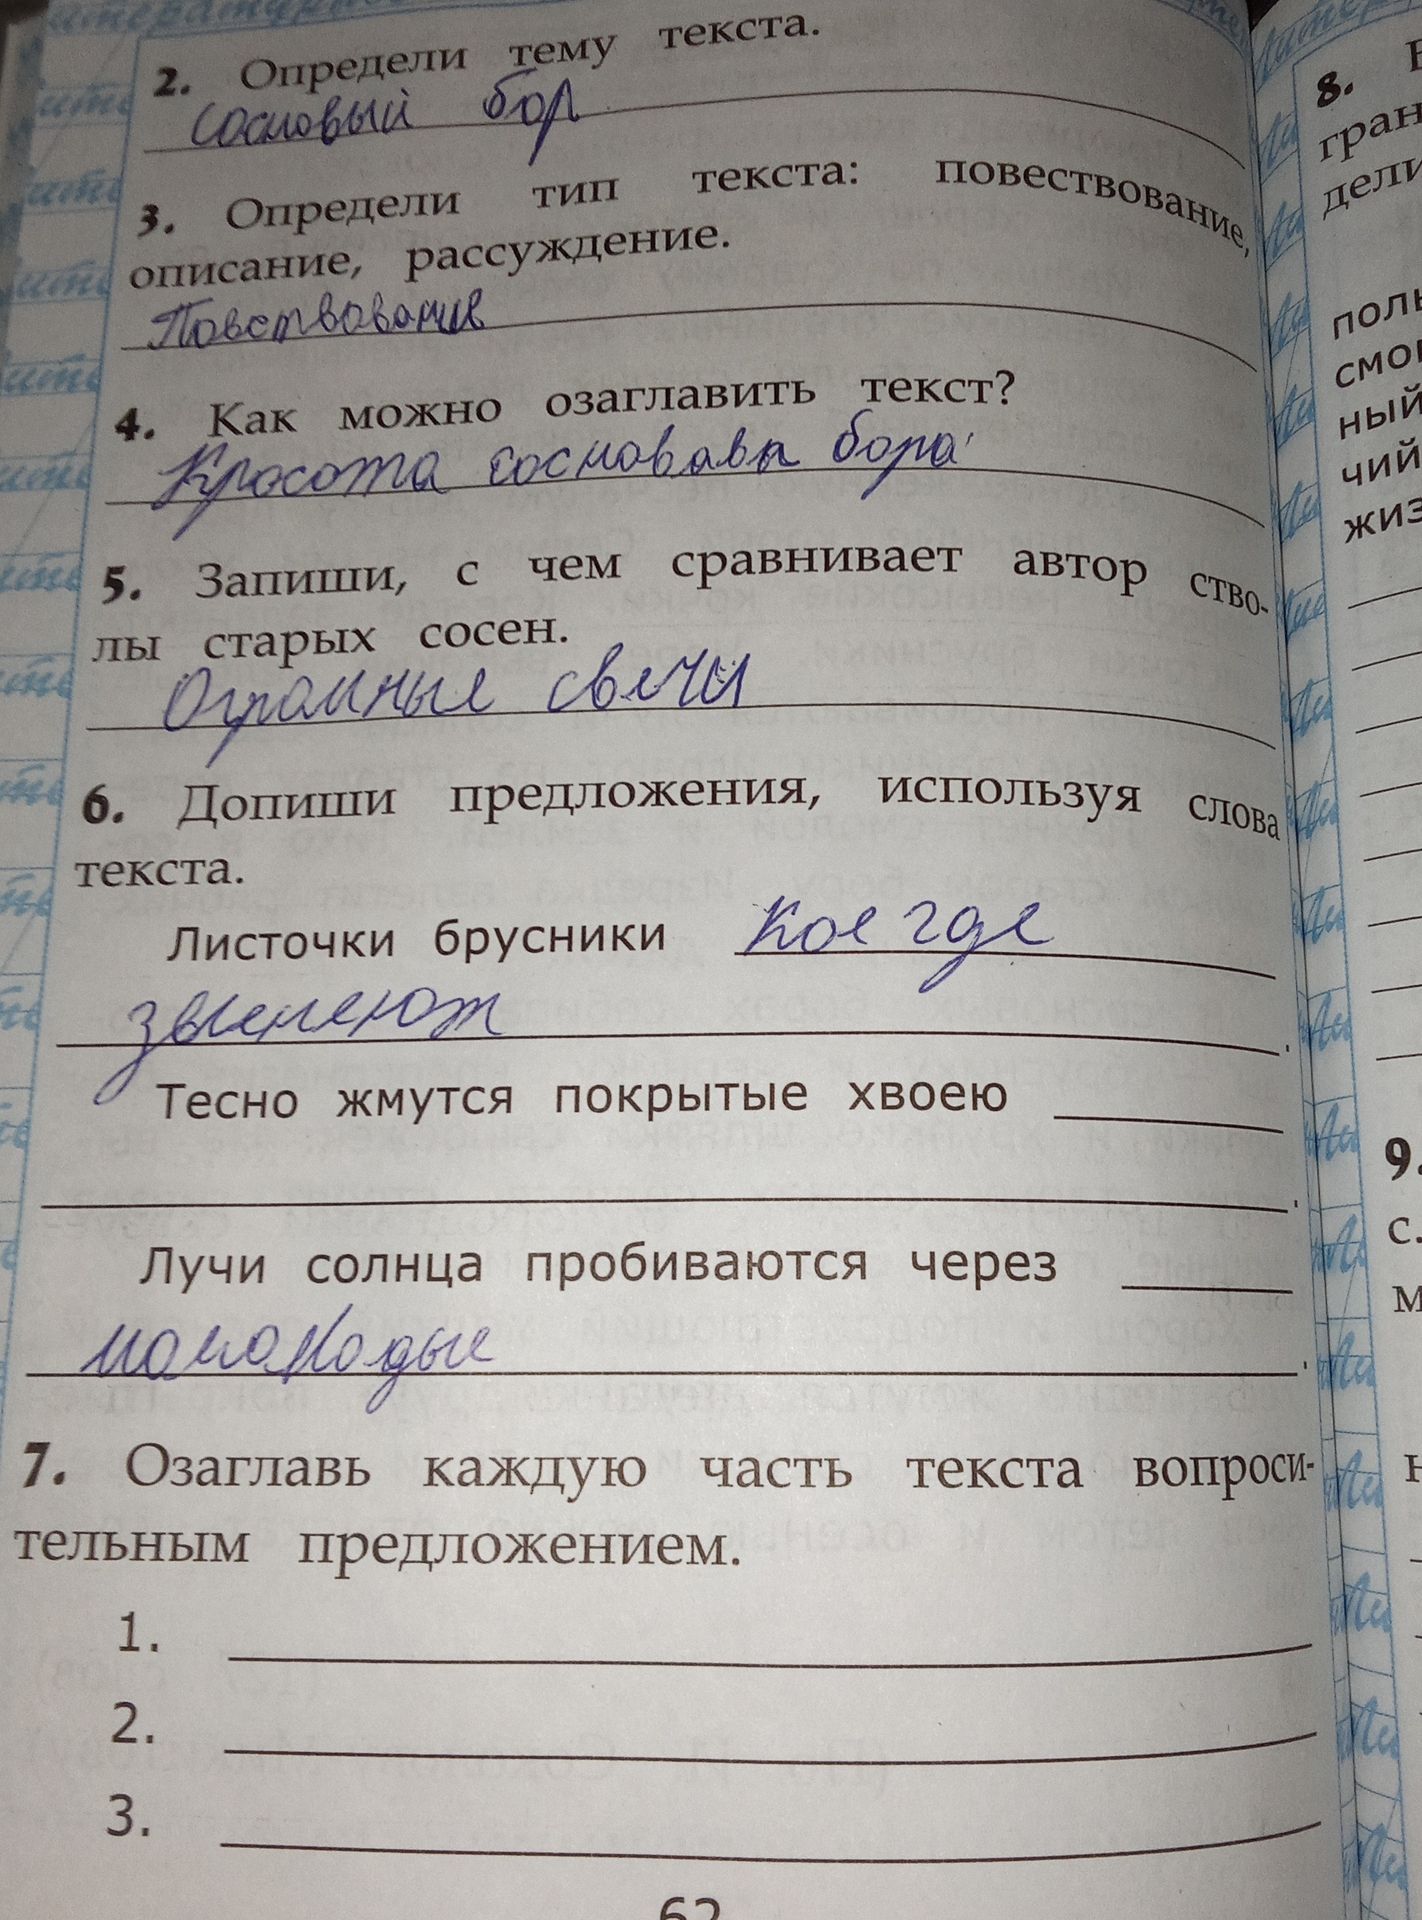 2. Определи тему текста.
сосновый бор
3. Определи тип текста: повествование,
описание, рассуждение.
Повствование
4. Как можно озаглавить текст?
Красота сосновава бора
5. Запиши, с чем сравнивает автор ство-
лы старых сосен.
Огромные свечи
6. Допиши предложения, используя слова
текста.
Листочки брусники кое где
.
Тесно жмутся покрытые хвоею
.
Лучи солнца пробиваются через
.
7. Озаглавь каждую часть текста вопроси-
тельным предложением.
1.
2.
3.
62
8.
гран
дели
поль
смо
ный
чий
жиз
9.
с.
м